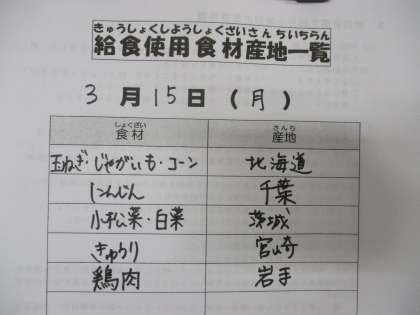 きゅうしょくしようしょくざいさんちいちらん
給食使用食材産地一覧
3月15日(月)
しょくざい さんち
食材 産地
玉ねぎ・じゃがいも・コーン 北海道
にんじん 千葉
小松菜・白菜 茨城
きゅうり 宮崎
鶏肉 岩手